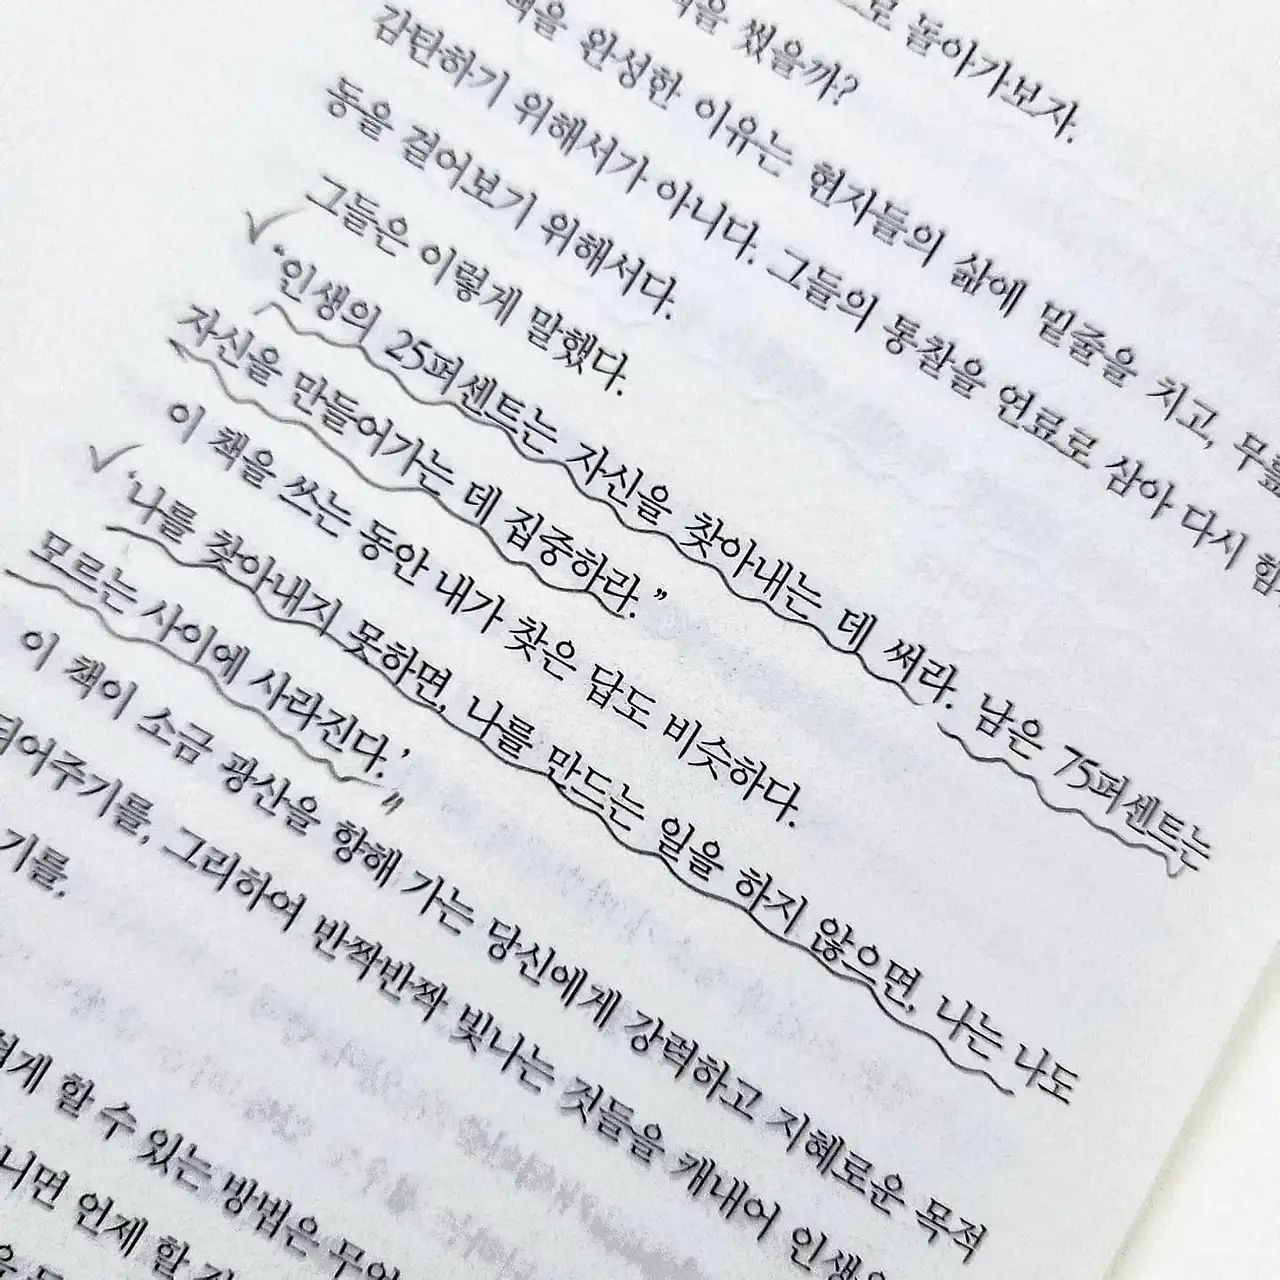 로 돌아가보자.
책을 썼을까?
책을 완성한 이유는 현자들의 삶에 밑줄을 치고, 무릎
감탄하기 위해서가 아니다. 그들의 통찰을 연료로 삼아 다시 힘
동을 걸어보기 위해서다.
그들은 이렇게 말했다.
“인생의 25퍼센트는 자신을 찾아내는 데 써라. 남은 75퍼센트는
자신을 만들어가는 데 집중하라.”
이 책을 쓰는 동안 내가 찾은 답도 비슷하다.
‘나를 찾아내지 못하면, 나를 만드는 일을 하지 않으면, 나는 나도
모르는 사이에 사라진다.’
이 책이 소금 광산을 향해 가는 당신에게 강력하고 지혜로운 목적
되어주기를, 그리하여 반짝반짝 빛나는 것들을 캐내어 인생
기를.
게 할 수 있는 방법은 무엇
니면 언제 할